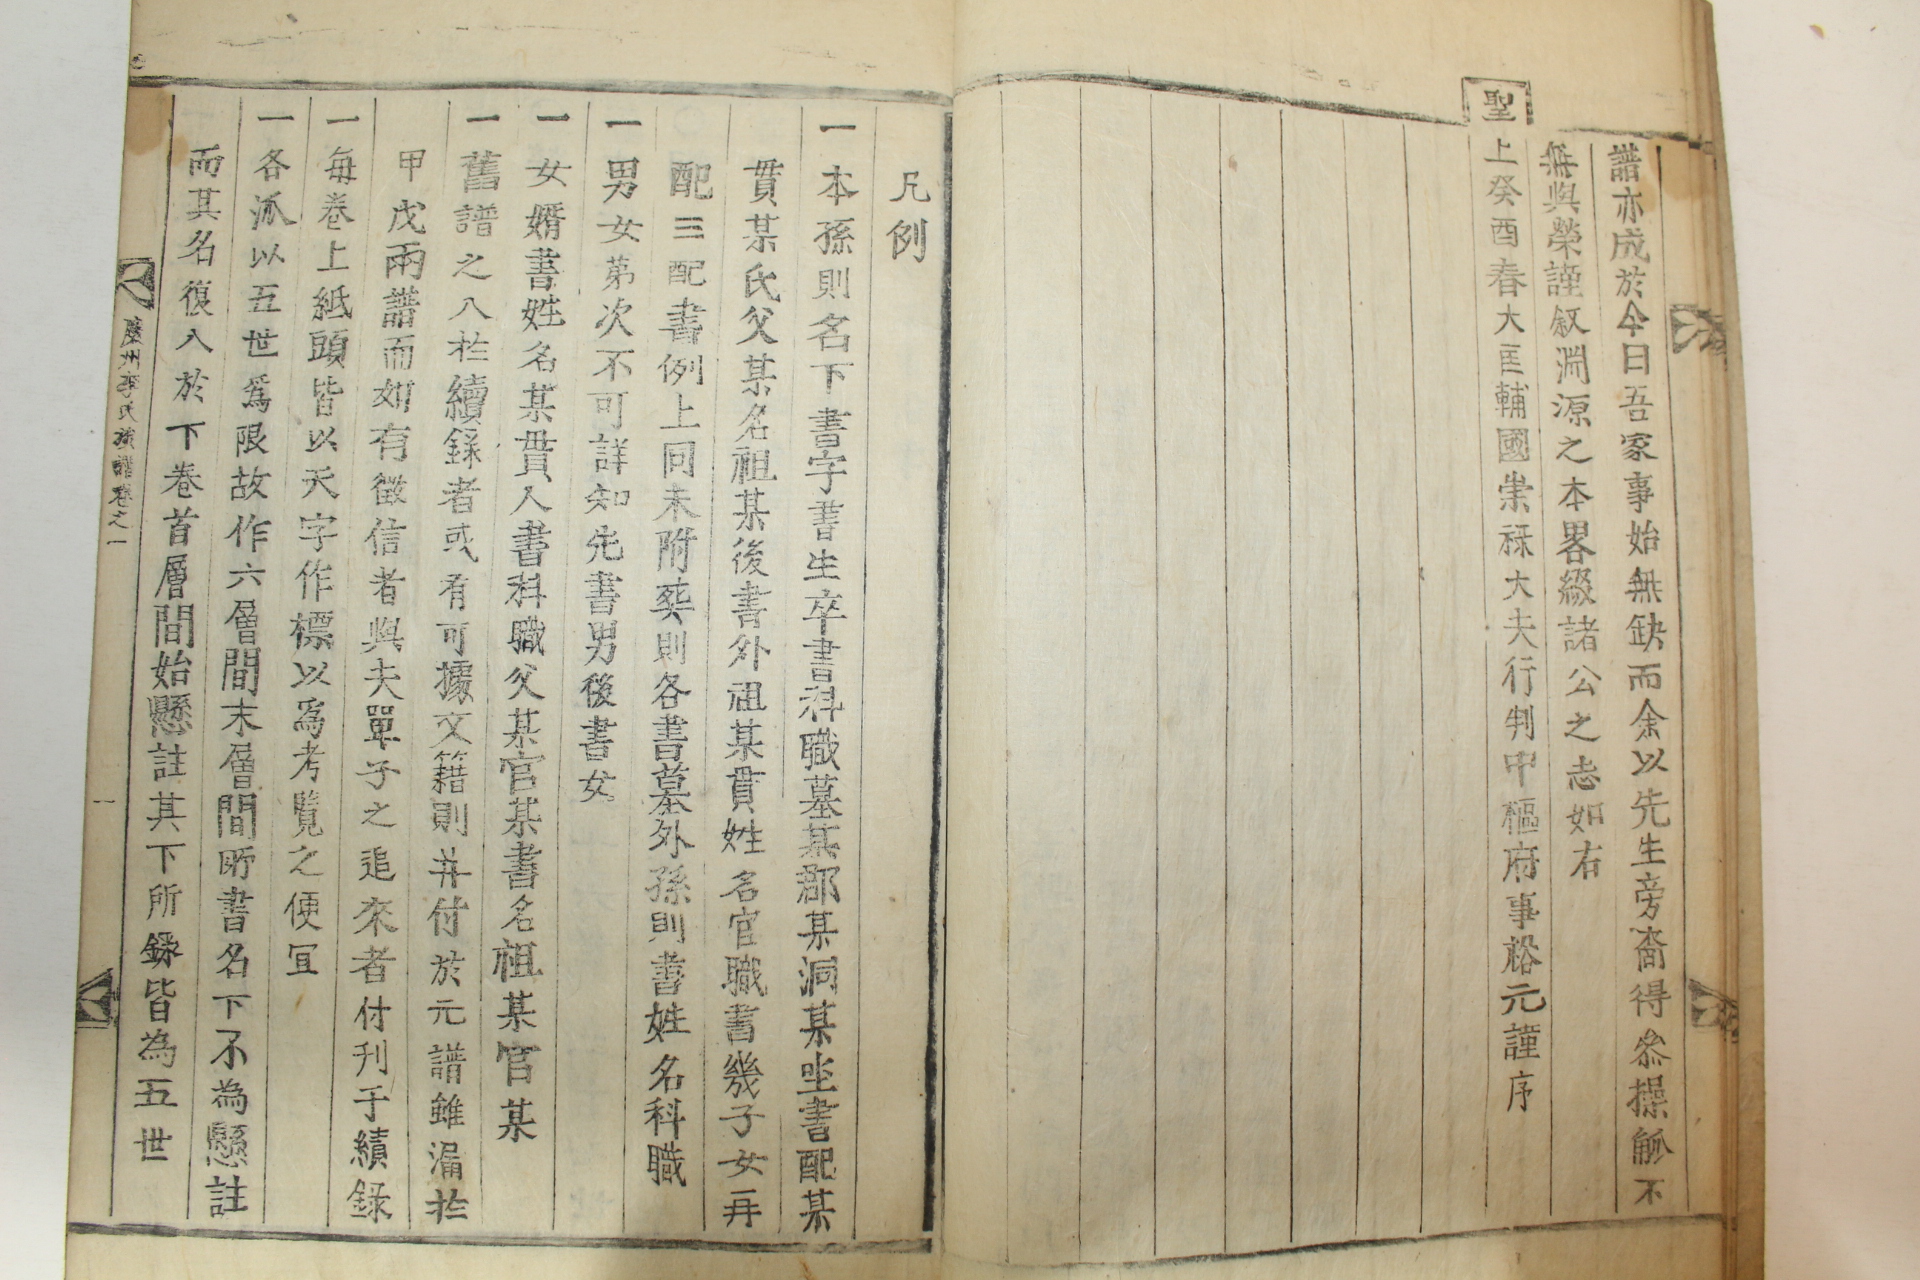 譜亦成於今日吾家事始無缺而余以先生旁裔得叅操觚不
無與榮謹叙淵源之本畧綴諸公之志如右
聖上癸酉春大匡輔國崇祿大夫行判中樞府事裕元謹序
凡例
一本孫則名下書字書生卒書科職墓某郡某洞某坐書配某
貫某氏父某名祖某後書外祖某貫姓名官職書幾子女再
配三配書例上同未附葬則各書墓外孫則書姓名科職
一男女第次不可詳知先書男後書女
一女婿書姓名某貫人書科職父某官某書名祖某官某
一舊譜之入於續錄者或有可據文籍則幷付於元譜雖漏於
甲戊兩譜而如有徵信者與夫單子之追來者付刊于續錄
一每卷上紙頭皆以天字作標以爲考覽之便冝
一各派以五世爲限故作六層間末層間所書名下不為懸註
而其名復入於下卷首層間始懸註其下所錄皆為五世
慶州李氏族譜卷之一
一